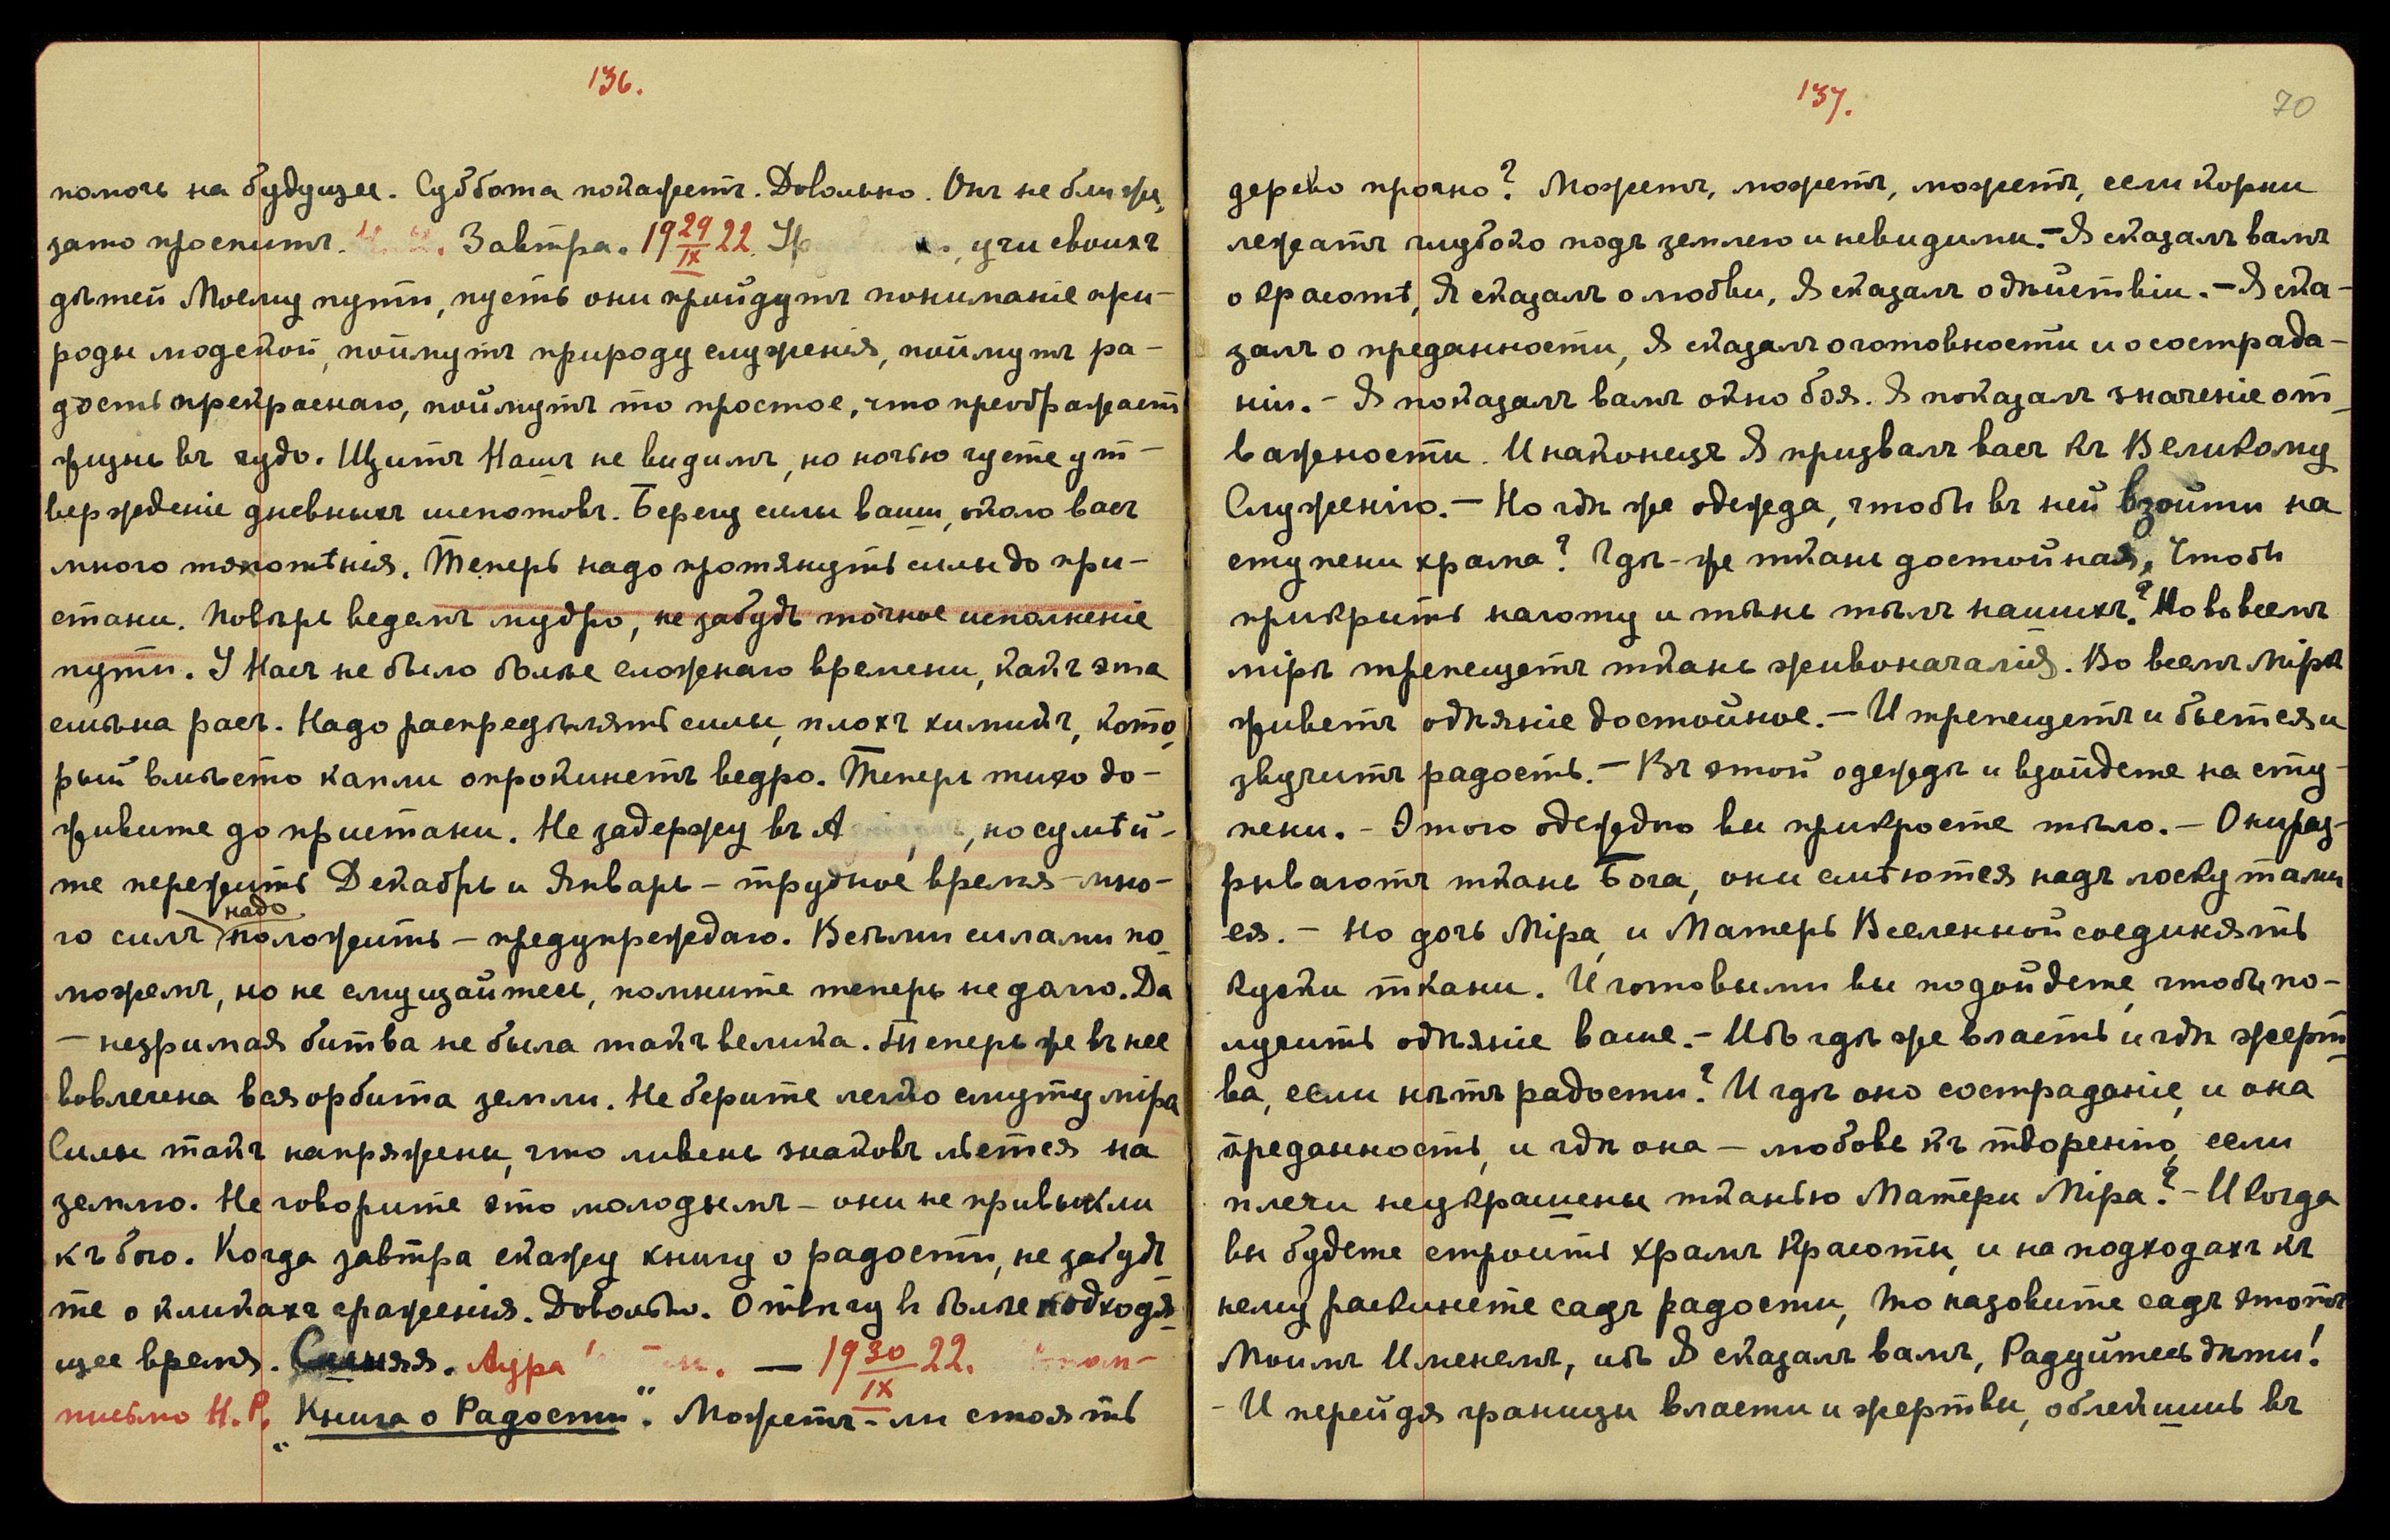 136.
помочь на будущее. Суббота покажетъ. Довольно. Онъ не ближе,
зато проситъ. Завтра. 19 29/IX 22. учи своихъ
дѣтей Моему пути, пусть они пройдутъ пониманіе при-
роды людской, поймутъ природу служенія, поймутъ ра-
дость прекраснаго, поймутъ то простое, что преображаетъ
жизнь въ чудо. Щитъ Нашъ не видимъ, но ночью чуете ут-
вержденіе дневныхъ шепотовъ. Берегу силы ваши, около васъ
много тяготѣнія. Теперь надо протянуть силы до при-
стани. Повѣрь ведемъ мудро, не забудь точное исполненіе
пути. У Насъ не было болѣе сложнаго времени, какъ эта
смѣна расъ. Надо распредѣлять силы, плохъ химикъ, кото-
рый вмѣсто капли опрокинетъ ведро. Теперь тихо до-
живите до пристани. Не задержу въ А , но сумѣй-
те пережить Декабрь и Январь – трудное время – мно-
го силъ надо положить – предупреждаю. Всѣми силами по-
можемъ, но не смущайтесь, помните теперь не долго. Да
– незримая битва не была такъ велика. Теперь же въ нее
вовлечена вся орбита земли. Не берите легко смуту міра
Силы такъ напряжены, что ливень знаковъ льется на
землю. Не говорите это молодымъ – они не привыкли
къ бою. Когда завтра скажу книгу о радости, не забудь-
те о кликахъ сраженія. Довольно. Отвѣчу въ болѣе подходя-
щее время. Синяя. Аура — 19 30/IX 22.
письмо Н.Р. „Книга о Радости“. Можетъ-ли стоять
137.
70
дерево прочно? Можетъ, можетъ, можетъ, если корни
лежатъ глубоко подъ землею и невидимы. – Я сказалъ вамъ
о красотѣ, Я сказалъ о любви, Я сказалъ о дѣйствіи. – Я ска-
залъ о преданности, Я сказалъ о готовности и о сострада-
ніи. – Я показалъ вамъ окно боя. Я показалъ значеніе от-
важности. И наконецъ Я призвалъ васъ къ Великому
Служенію. – Но гдѣ же одежда, чтобы въ ней взойти на
ступени храма? Гдѣ-же ткань достойная, Чтобы
прикрыть наготу и тѣнь тѣлъ нашихъ? Но во всемъ
мірѣ трепещетъ ткань живоначалія. Во всемъ Мірѣ
живетъ одѣяніе достойное. – И трепещетъ и бьется и
звучитъ радость. – Въ этой одеждѣ и взойдете на сту-
пени. – Этого одеждою вы прикроете тѣло. – Они раз-
рываютъ ткань Бога, они смѣются надъ лоскутами
ея. – Но дочь Міра, и Матерь Вселенной соединятъ
куски ткани. И готовыми вы подойдете, чтобы по-
лучить одѣяніе ваше. – Ибо гдѣ же власть и гдѣ жерт-
ва, если нѣтъ радости? И гдѣ оно состраданіе, и она
преданность, и гдѣ она – любовь къ творенію, если
плечи неукрашены тканью Матери Міра? – И когда
вы будете строить храмъ Красоты, и на подходахъ къ
нему раскинете садъ радости, то назовите садъ этотъ
Моимъ Именемъ, ибо Я сказалъ вамъ, Радуйтесь дѣти!
– И перейдя границы власти и жертвы, облекшись въ